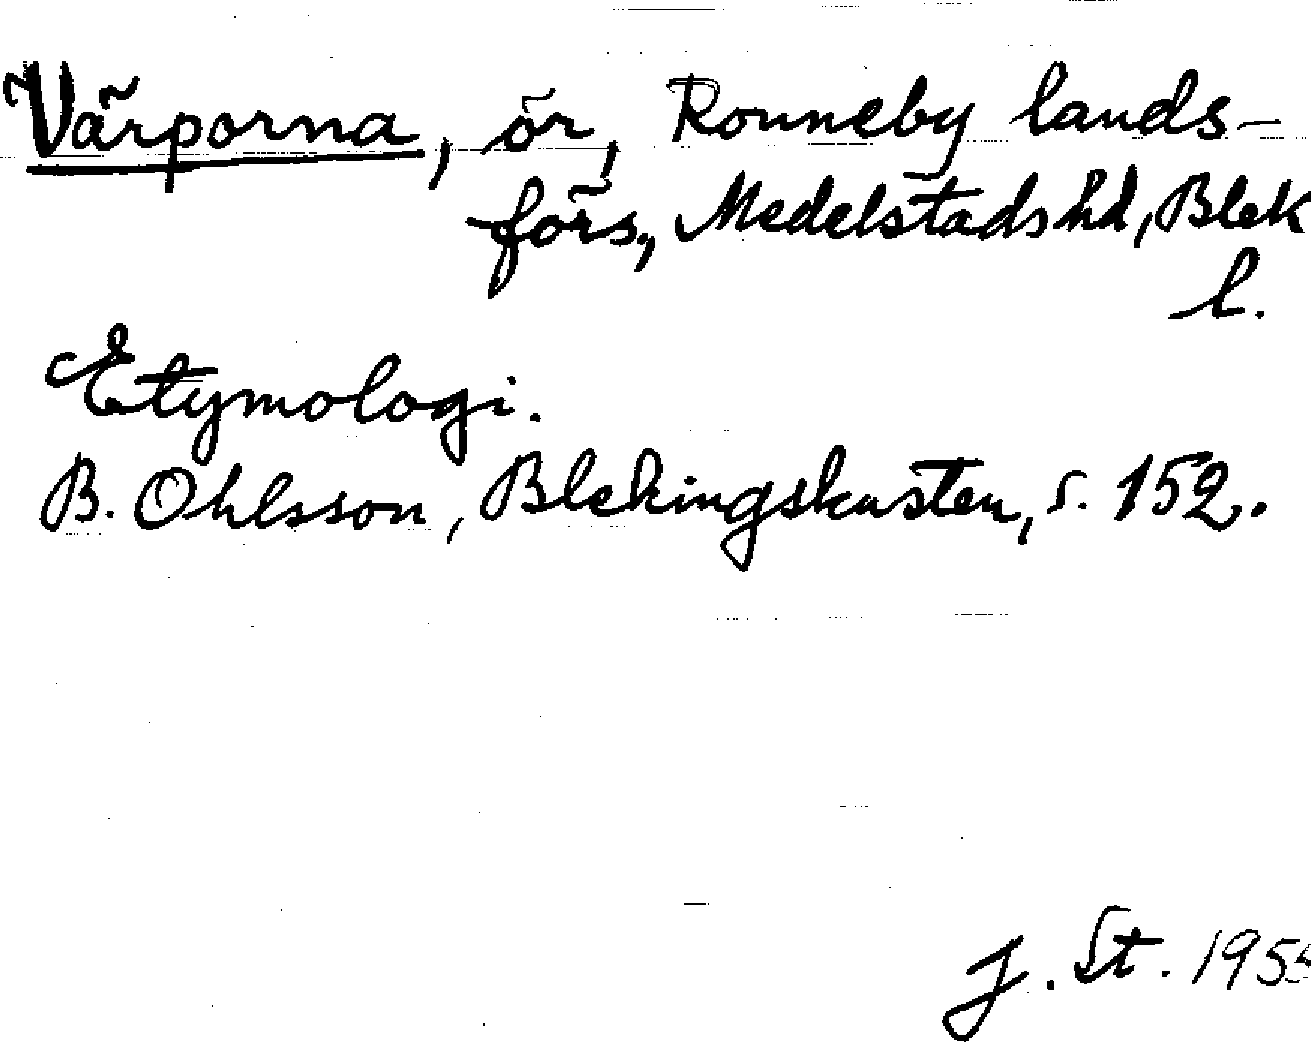 Värporna, ör, Ronneby lands-
förs., Medelstads hd, Blek
l.
Etymologi.
B. Ohlsson, Blekingskusten, s. 152.
J. St. 1955